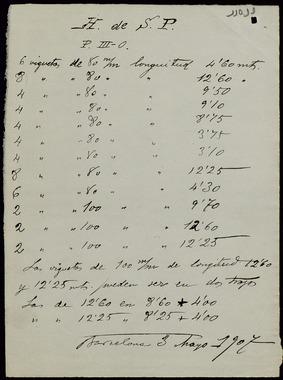 H. de S. P.
P. III-O.
6 viguetas de 80 m/m longuitud 4'60 mts.
8 " " 80 " " 12'60 "
4 " " 80 " " 9'50
4 " " 80 " " 9'10
4 " " 80 " " 8'75
4 " " 80 " " 3'75
4 " " 80 " " 3'10
8 " " 80 " " 12'25
6 " " 80 " " 4'30
2 " " 100 " " 9'70
2 " " 100 " " 12'60
2 " " 100 " " 12'25
Las viguetas de 100 m/m de longitud 12'60
y 12'25 mts pueden ser en dos trozos
Las de 12'60 en 8'60 + 4'00
" " 12'25 " 8'25 + 4'00
Barcelona 3 Mayo 1907